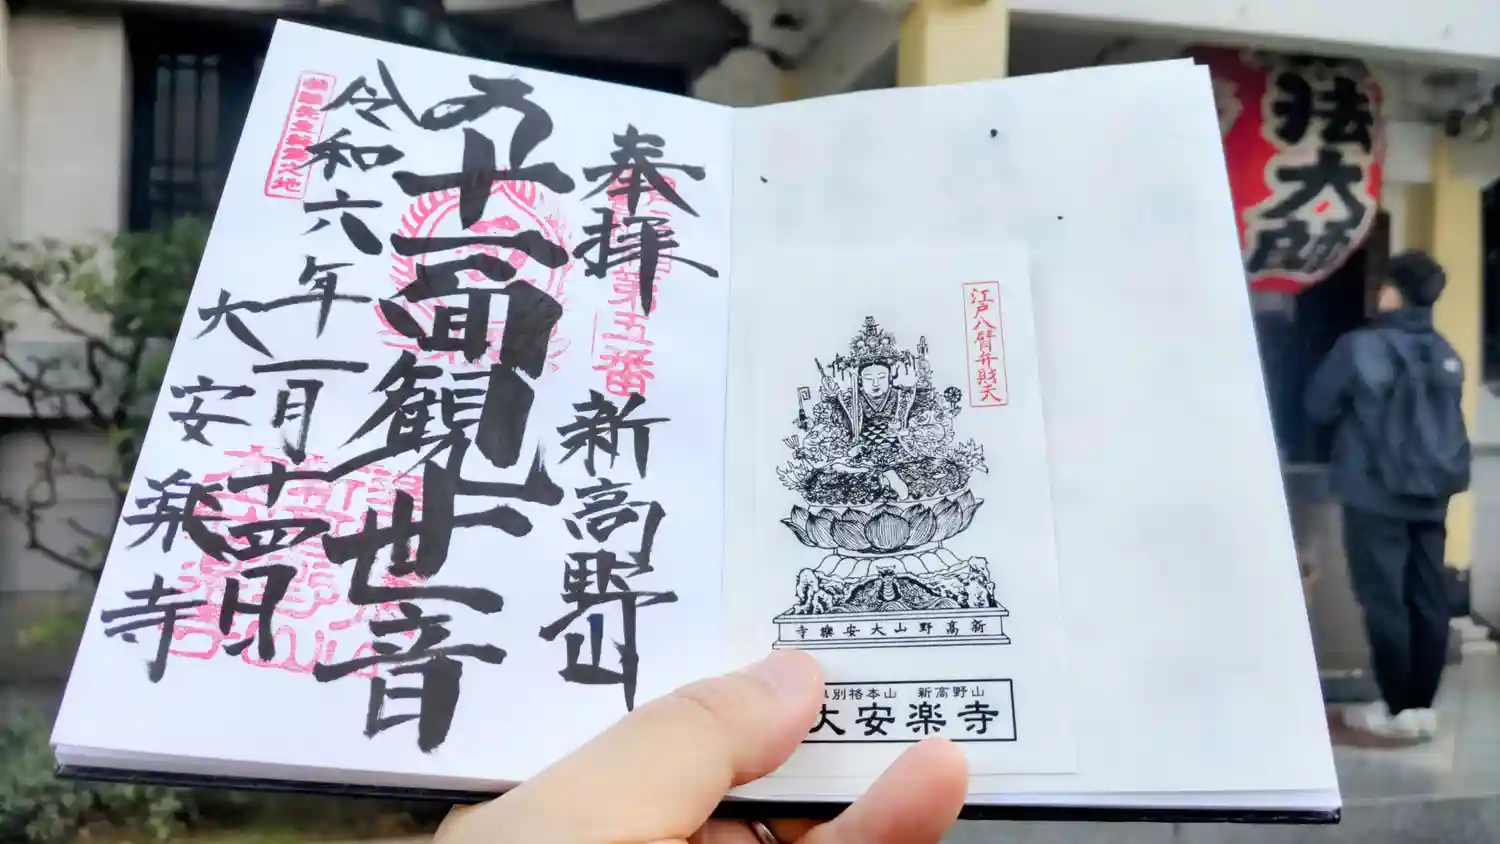 奉拝
第五番
新高野山
十一面観世音
令和六年一月十四日
大安楽寺
江戸八臂弁財天
新高野山大安樂寺
別格本山 新高野山
大安楽寺
法大師